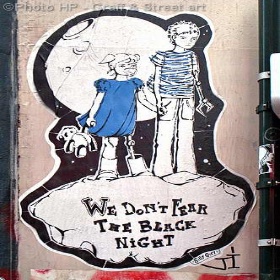 ©Photo HP - Graff & Street art
WE DON'T FEAR
THE BLACK
NIGHT